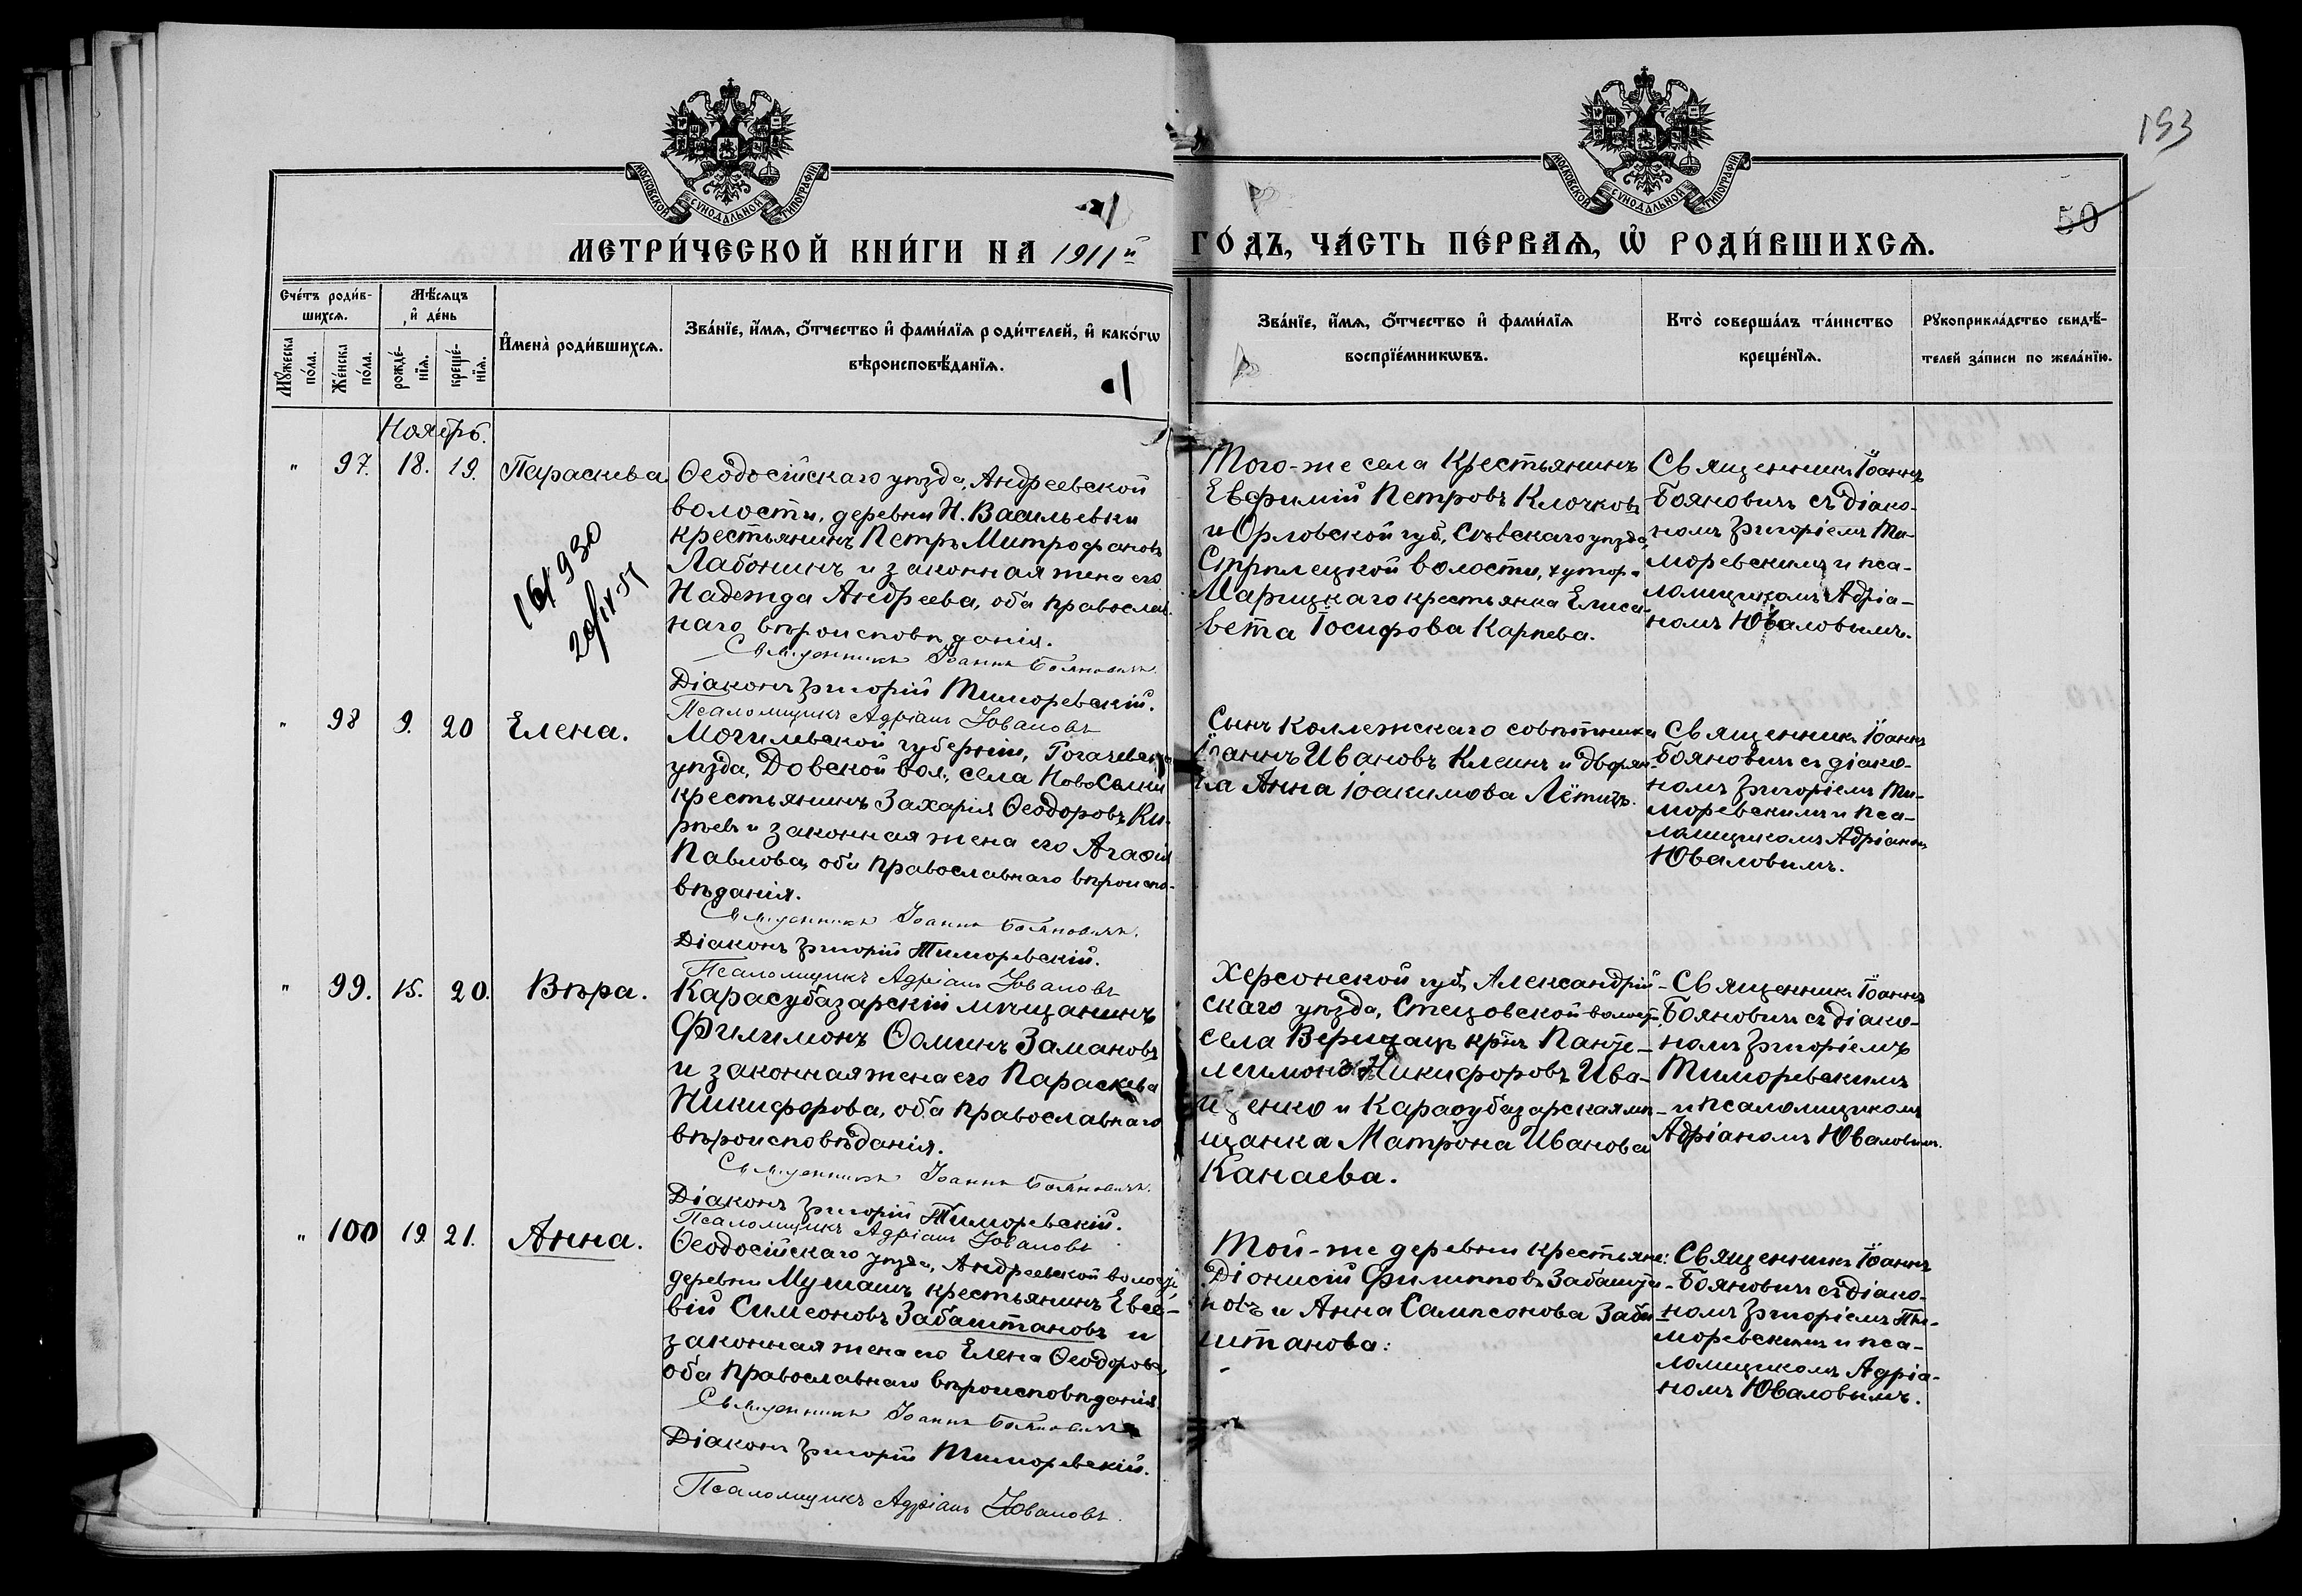 МОСКОВСКОЙ СѴНОДАЛЬНОЙ ТИПОГРАФІИ
МОСКОВСКОЙ СѴНОДАЛЬНОЙ ТИПОГРАФІИ
193
50
МЕТРИ́ЧЕСКОЙ КНИ́ГИ НА 1911й
ГО́ДЪ, ЧА́СТЬ ПЕ́РВАѦ, Ѡ҆ РОДИ́ВШИХСѦ.
Сче́тъ роди́в-
шихсѧ.
Мѣ́сѧцъ
и҆ де́нь
Мꙋ́жеска
по́ла.
Же́нска
по́ла.
рожде́-
нїѧ.
креще́-
нїѧ.
И҆мена̀ роди́вшихсѧ.
Зва́нїе, и҆́мѧ, ѻ҆́тчество и҆ фами́лїѧ роди́телей, и҆ како́гѡ
вѣроисповѣ́данїѧ.
Зва́нїе, и҆́мѧ, ѻ҆́тчество и҆ фами́лїѧ
воспрїе́мникѡвъ.
Кто̀ соверша́лъ та́инство
креще́нїѧ.
Рꙋкоприкла́дство свидѣ́-
телей за́писи по жела́нїю.
Ноябрь.
" 97. 18. 19. Параскева
Ѳеодосійскаго уѣзда, Андреевской
волости, деревни Н. Васильевки
крестьянинъ Петръ Митрофановъ
Лабонинъ и законная жена его
Надежда Андреева, оба православ-
наго вѣроисповѣданія.
Священникъ Іоаннъ Бояновичъ.
Діаконъ Григорій Тиморевскій.
Псаломщикъ Адріанъ Юваловъ
161930
Того-же села крестьянинъ
Евфимій Петровъ Клочковъ
и Орловской губ., Сѣвскаго уѣзда,
Стрѣлецкой волости, хутора
Марицкаго крестьянка Елиса-
вета Іосифова Карпева.
Священникъ Іоаннъ
Бояновичъ съ діако-
номъ Григоріемъ Ти-
моревскимъ и пса-
ломщикомъ Адріа-
номъ Юваловымъ.
" 98 9. 20 Елена.
Могилевской губерніи, Рогачевск.
уѣзда, Довской вол., села Новоселки
крестьянинъ Захарія Ѳеодоровъ Ки-
рѣевъ и законная жена его Агафія
Павлова, оба православнаго вѣроиспо-
вѣданія.
Священникъ Іоаннъ Бояновичъ.
Діаконъ Григорій Тиморевскій.
Псаломщикъ Адріанъ Юваловъ
Сынъ коллежскаго совѣтника
Іоаннъ Ивановъ Клеинъ и дворян-
ка Анна Іоакимова Лётицъ.
Священникъ Іоаннъ
Бояновичъ съ діако-
номъ Григоріемъ Ти-
моревскимъ и пса-
ломщикомъ Адріаномъ
Юваловымъ.
" 99. 15. 20. Вѣра.
Карасубазарскій мѣщанинъ
Филимонъ Ѳоминъ Замановъ
и законная жена его Параскева
Никифорова, оба православнаго
вѣроисповѣданія.
Священникъ Іоаннъ Бояновичъ.
Діаконъ Григорій Тиморевскій.
Псаломщикъ Адріанъ Юваловъ
Херсонской губ., Александрій-
скаго уѣзда, Стецовской волости,
села крнъ Панте-
леимонъ Никифоровъ Ива-
щенко и Карасубазарская мѣ-
щанка Матрона Иванова
Канаева.
Священникъ Іоаннъ
Бояновичъ съ діако-
номъ Григоріемъ
Тиморевскимъ
и псаломщикомъ
Адріаномъ Юваловым.
" 100 19 21. Анна.
Ѳеодосійскаго уѣзда, Андреевской волости,
деревни Мушашъ крестьянинъ Евсе-
вій Симеоновъ Забаштановъ и
законная жена его Елена Ѳеодорова,
оба православнаго вѣроисповѣданія.
Священникъ Іоаннъ Бояновичъ
Діаконъ Григорій Тиморевскій.
Псаломщикъ Адріанъ Юваловъ.
Той-же деревни крестьяне:
Діонисій Филипповъ Забашта-
новъ и Анна Сампсонова Заба-
штанова.
Священникъ Іоаннъ
Бояновичъ съ діако-
номъ Григоріемъ Ти-
моревскимъ и пса-
ломщикомъ Адріа-
номъ Юваловымъ.